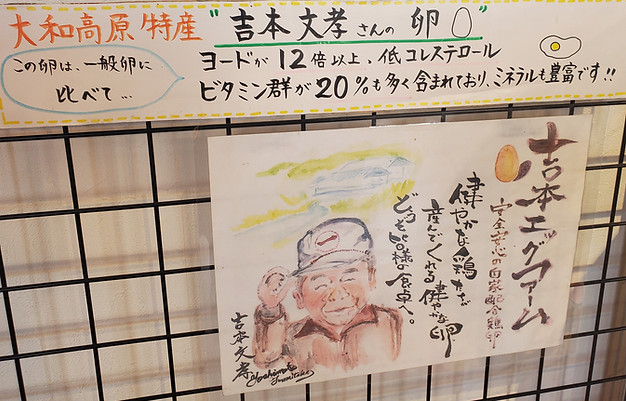 大和高原特産
"吉本文孝さんの 卵"
この卵は、一般卵に
比べて…
ヨードが12倍以上、低コレステロール
ビタミン群が20%も多く含まれており、ミネラルも豊富です!!
吉本エッグファーム
安全安心の自家配合鶏卵
健やかな鶏たちが
産んでくれる健やかな卵
どうぞ皆様の食卓へ。
吉本文孝
Yoshimoto
Fumitaka